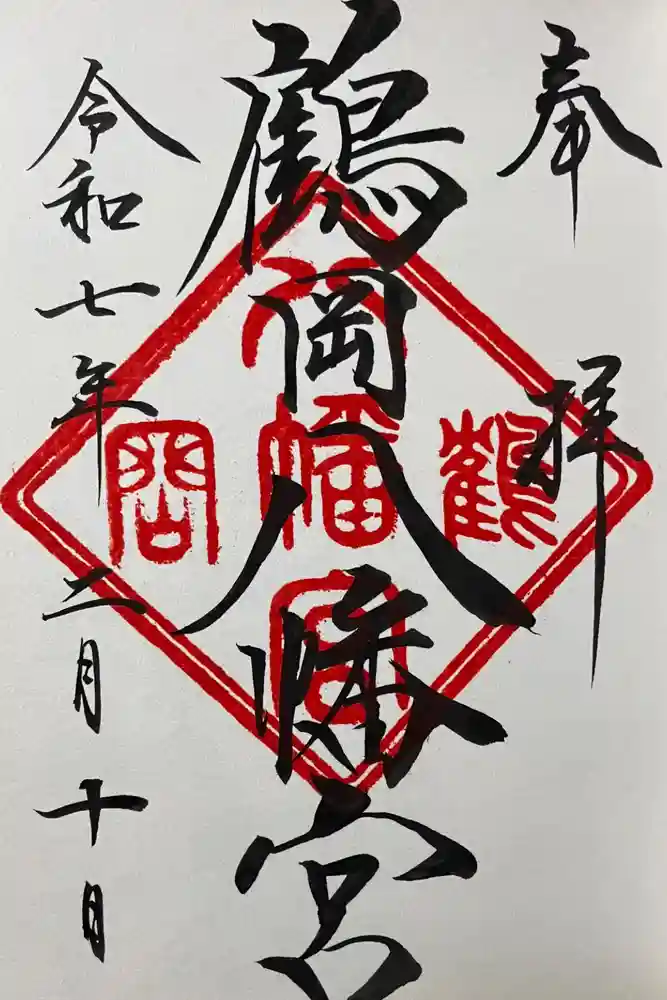 奉拝
鶴岡八幡宮
令和七年二月十日
鶴
八幡宮
岡